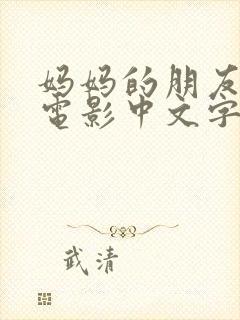 妈妈的朋友
電影中文字
武清